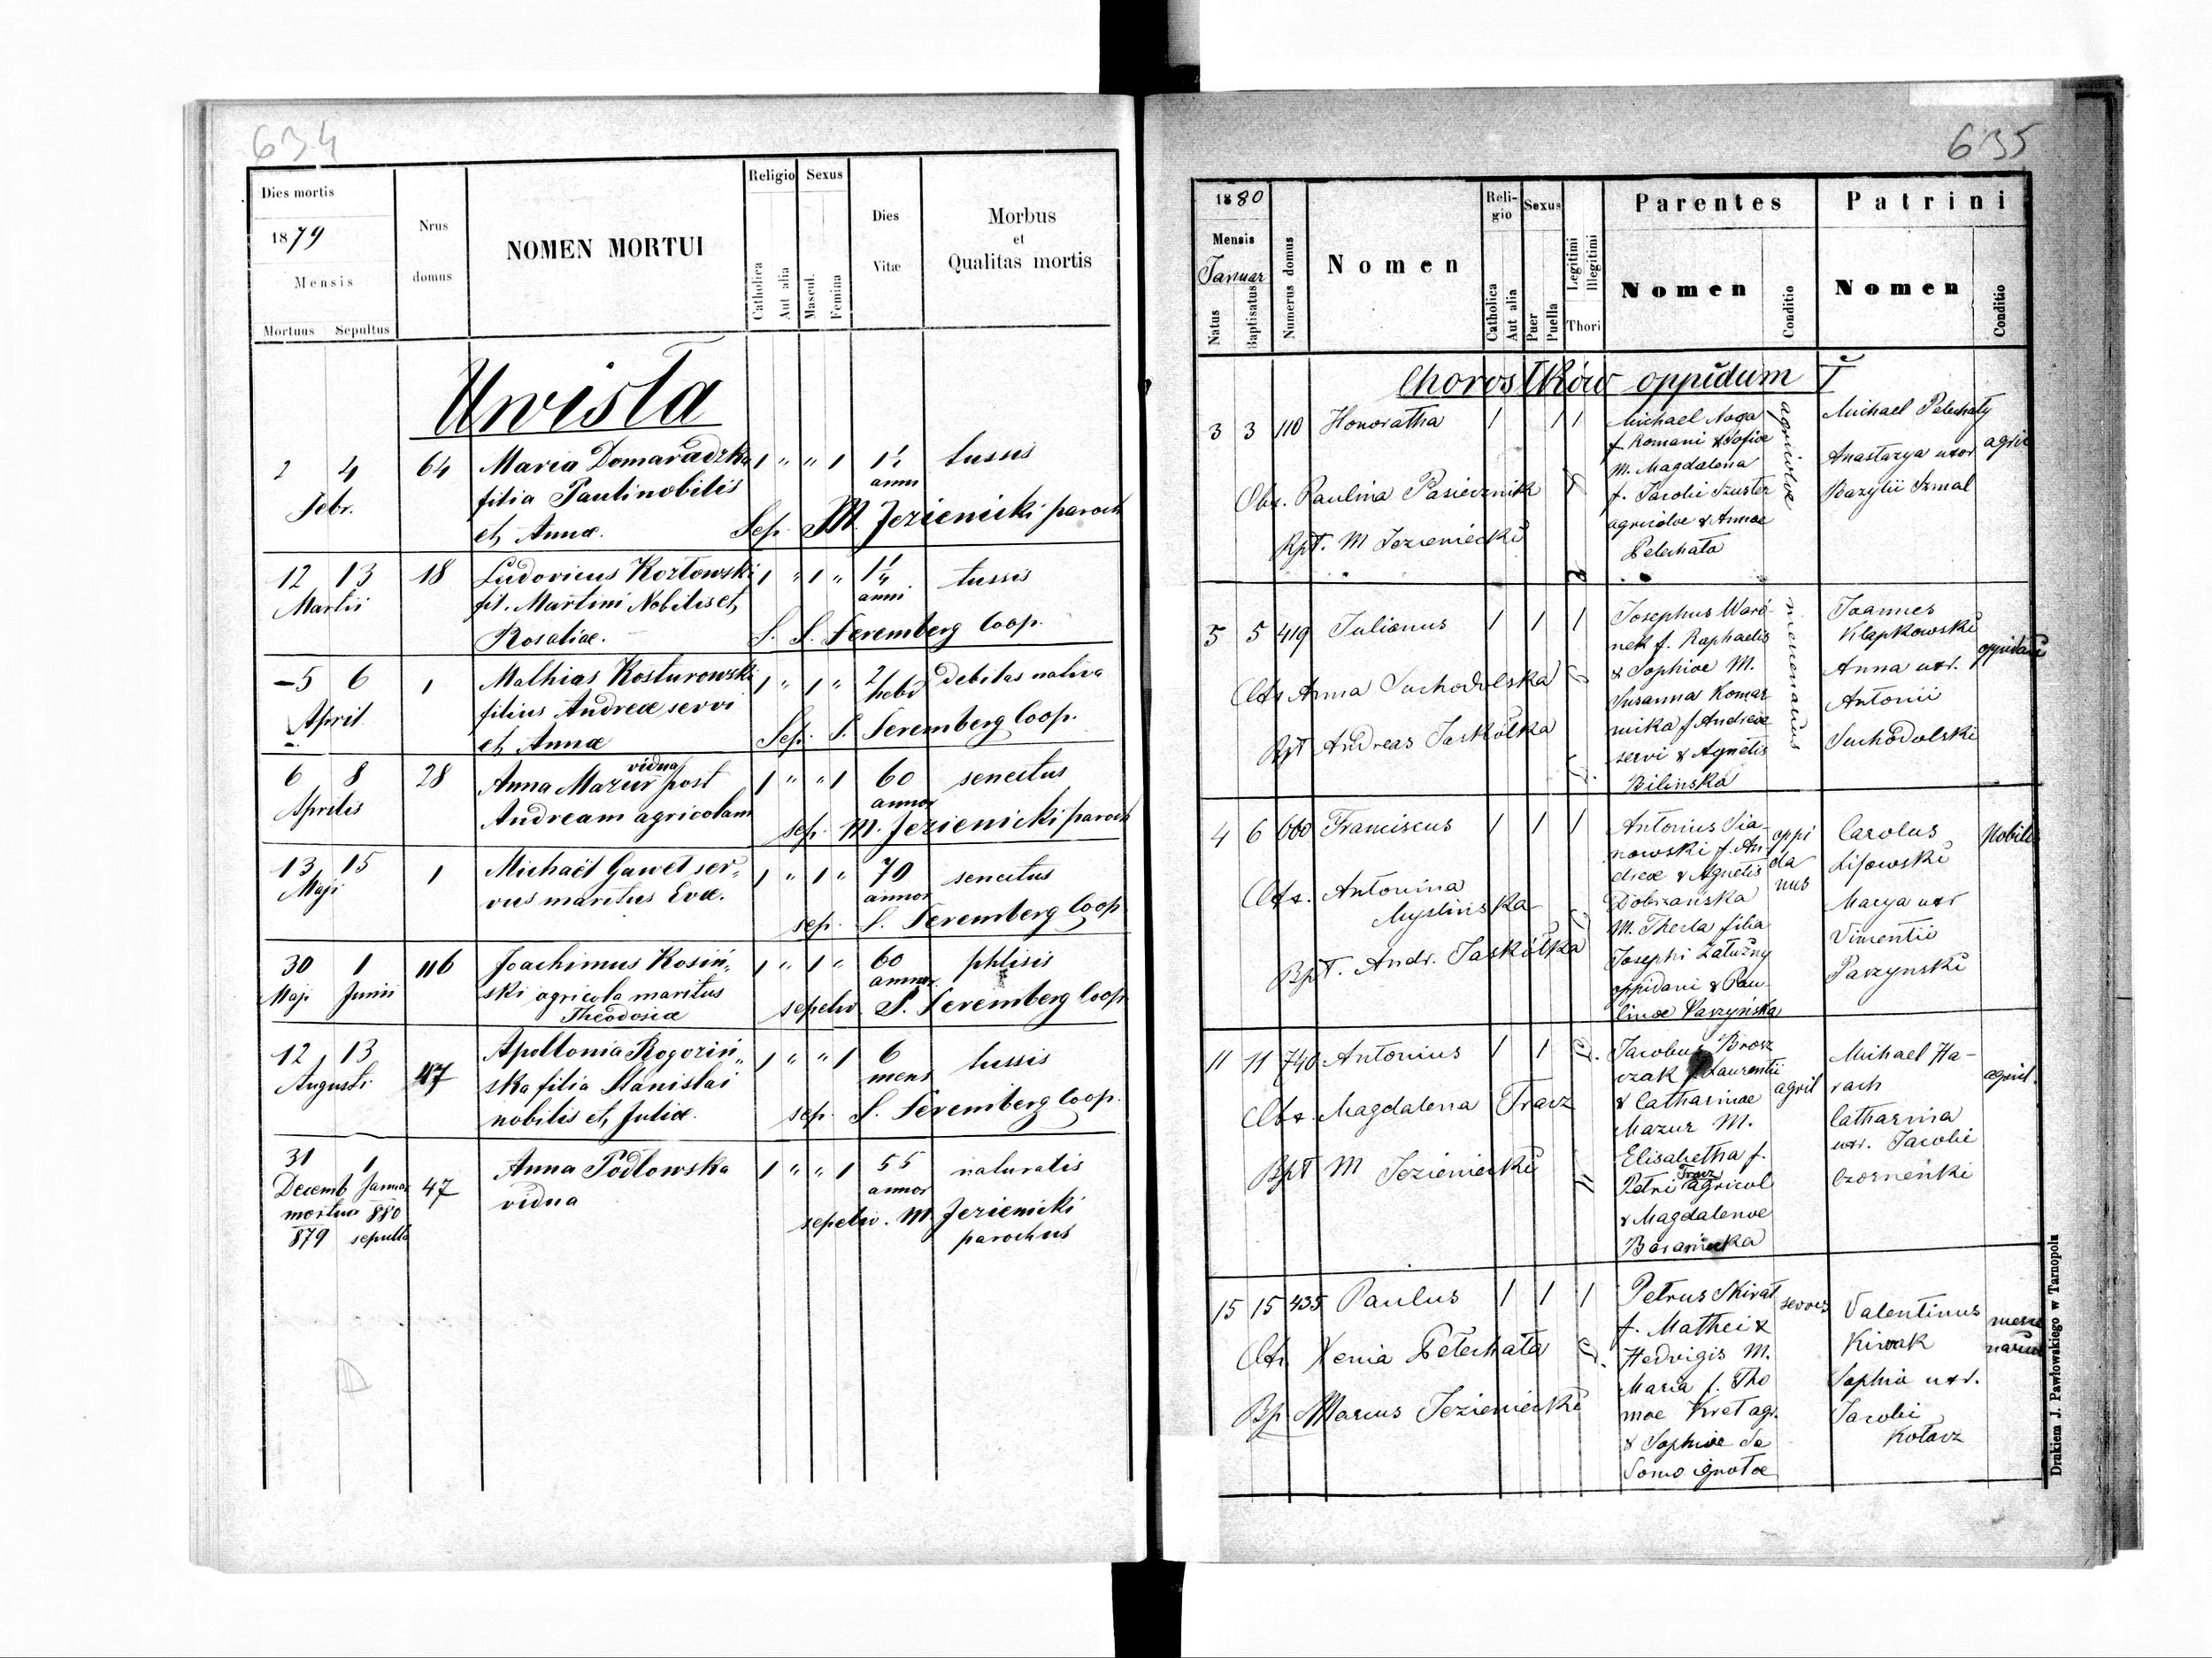 634
Dies mortis
1879
Mensis
Mortuus Sepultus
Nrus domus
NOMEN MORTUI
Religio
Catholica
Aut alia
Sexus
Mascul.
Femina
Dies Vitæ
Morbus
et
Qualitas mortis
Uwista
2 4 64 Maria Domaradzka 1 " " 1 1½ tussis
Febr. filia Pauli nobilis anni
et Annæ. Sep. M. Jezienicki paroch
12 13 18 Ludovicus Kozłowski 1 " 1 " 1¼ tussis
Martii fil. Martini Nobilis et anni
Rosaliae. S. S. Feremberg Coop.
5 6 1 Mathias Kosturowski 1 " 1 " 2 debitas nativa
April filius Andreæ servi hebd
et Annæ Sep. S. Feremberg Coop.
6 8 28 Anna Mazur vidua post 1 " " 1 60 senectus
Aprilis Andream agricolam annor
sep. M. Jezienicki paroch
13 15 1 Michaël Gaweł ser„ 1 " 1 " 70 senectus
Maji vus maritus Evæ. annor
sep. S. Feremberg Coop
30 1 116 Joachimus Kosiń„ 1 " 1 " 60 phtisis
Maji Junii ski agricola maritus annor.
Theodosiæ sepeliv S. Feremberg Coop
12 13 47 Apollonia Rogoziń„ 1 " " 1 6 tussis
Augusti ska filia Stanislai mens
nobilis et Juliæ. sep. S. Feremberg Coop.
31 1 47 Anna Podłowska 1 " " 1 55 naturalis
Decemb Januar vidua annor
mortua 880 sepeliv. M Jezienicki
879 sepulta parochus
635
1880
Mensis
Januar
Natus
Baptisatus
Numerus domus
Nomen
Religio
Catholica
Aut alia
Sexus
Puer
Puella
Legitimi
Illegitimi
Thori
Parentes
Nomen
Conditio
Patrini
Nomen
Conditio
Chorostków oppidum
3 3 110 Honoratha 1 1 1
Obs. Paulina Pasiecznik
Bpt. M Jezienicki
Michael Noga
f. Romani & Sofiæ
M. Magdalena
f. Jacobi Szuster
agricolæ & Annae
Pelechata
agricolæ
Michael Pelechaty
Anastazya uxor
Bazylii Szmal
agric
5 5 419 Julianus 1 1 1
Obs Anna Suchodolska
Bpt Andreas Jaskółka
Josephus Waró-
nek f. Raphaelis
& Sophiæ M.
Susanna Komar
nika f Andreæ
servi & Agnetis
Bilińska
Joannes
Kląpkowski
Anna uxr.
Antonii
Suchodolski
oppidani
4 6 660 Franciscus 1 1 1
Obs. Antonina
Myslinska
Bpt. Andr. Jaskółka
Antonius Sia-
nowski f. An-
dreæ & Agnetis
Dobrzańska
M. Thecla filia
Josephi Załużny
oppidani & Pau-
linæ Parzyńska
oppi
da
nus
Carolus
Lisowski
Marya uxr
Vincentii
Parzynski
Nobiles
11 11 740 Antonius 1 1
Obs. Magdalena Tracz
Bpt M Jezienicki
Jacobus Brosz
czak f. Laurentii
& Catharinae
Mazur M.
Elisabetha f.
Petri Tracz agricol
& Magdalenæ
Baraniecka
agril
Michael Ha-
rach
Catharina
uxr. Jacobi
Czorneńki
agricl.
15 15 435 Paulus 1 1 1
Obs. Xenia Pelechata
Bp. Marcus Jezienicki
Petrus Skirat
f. Mathei &
Hedvigis M.
Maria f. Tho
mae Kret agr.
& Sophiæ de
Domo ignotæ
servus
Valentinus
Kiwak
Sophia uxr.
Jacobi
Kolarz
merce
narius
Drukiem J. Pawłowskiego w Tarnopolu